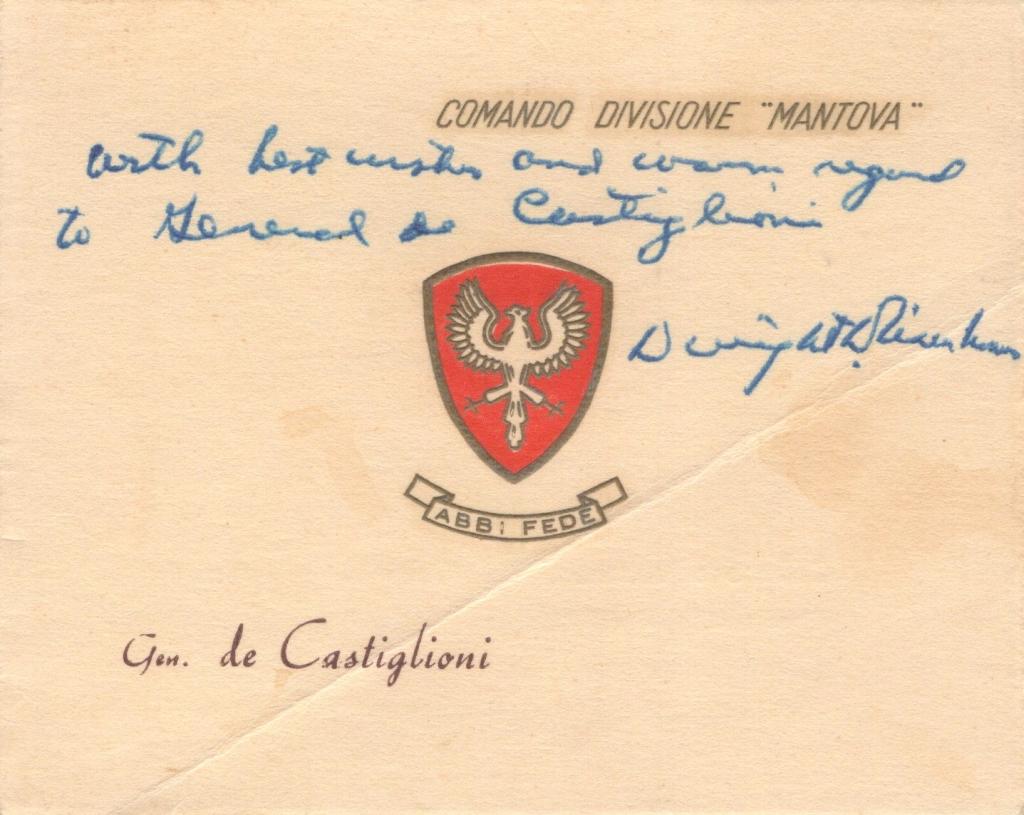 COMANDO DIVISIONE "MANTOVA"
with best wishes and warm regard
to General de Castiglioni
Dwight D Eisenhower
ABBI FEDE
Gen. de Castiglioni